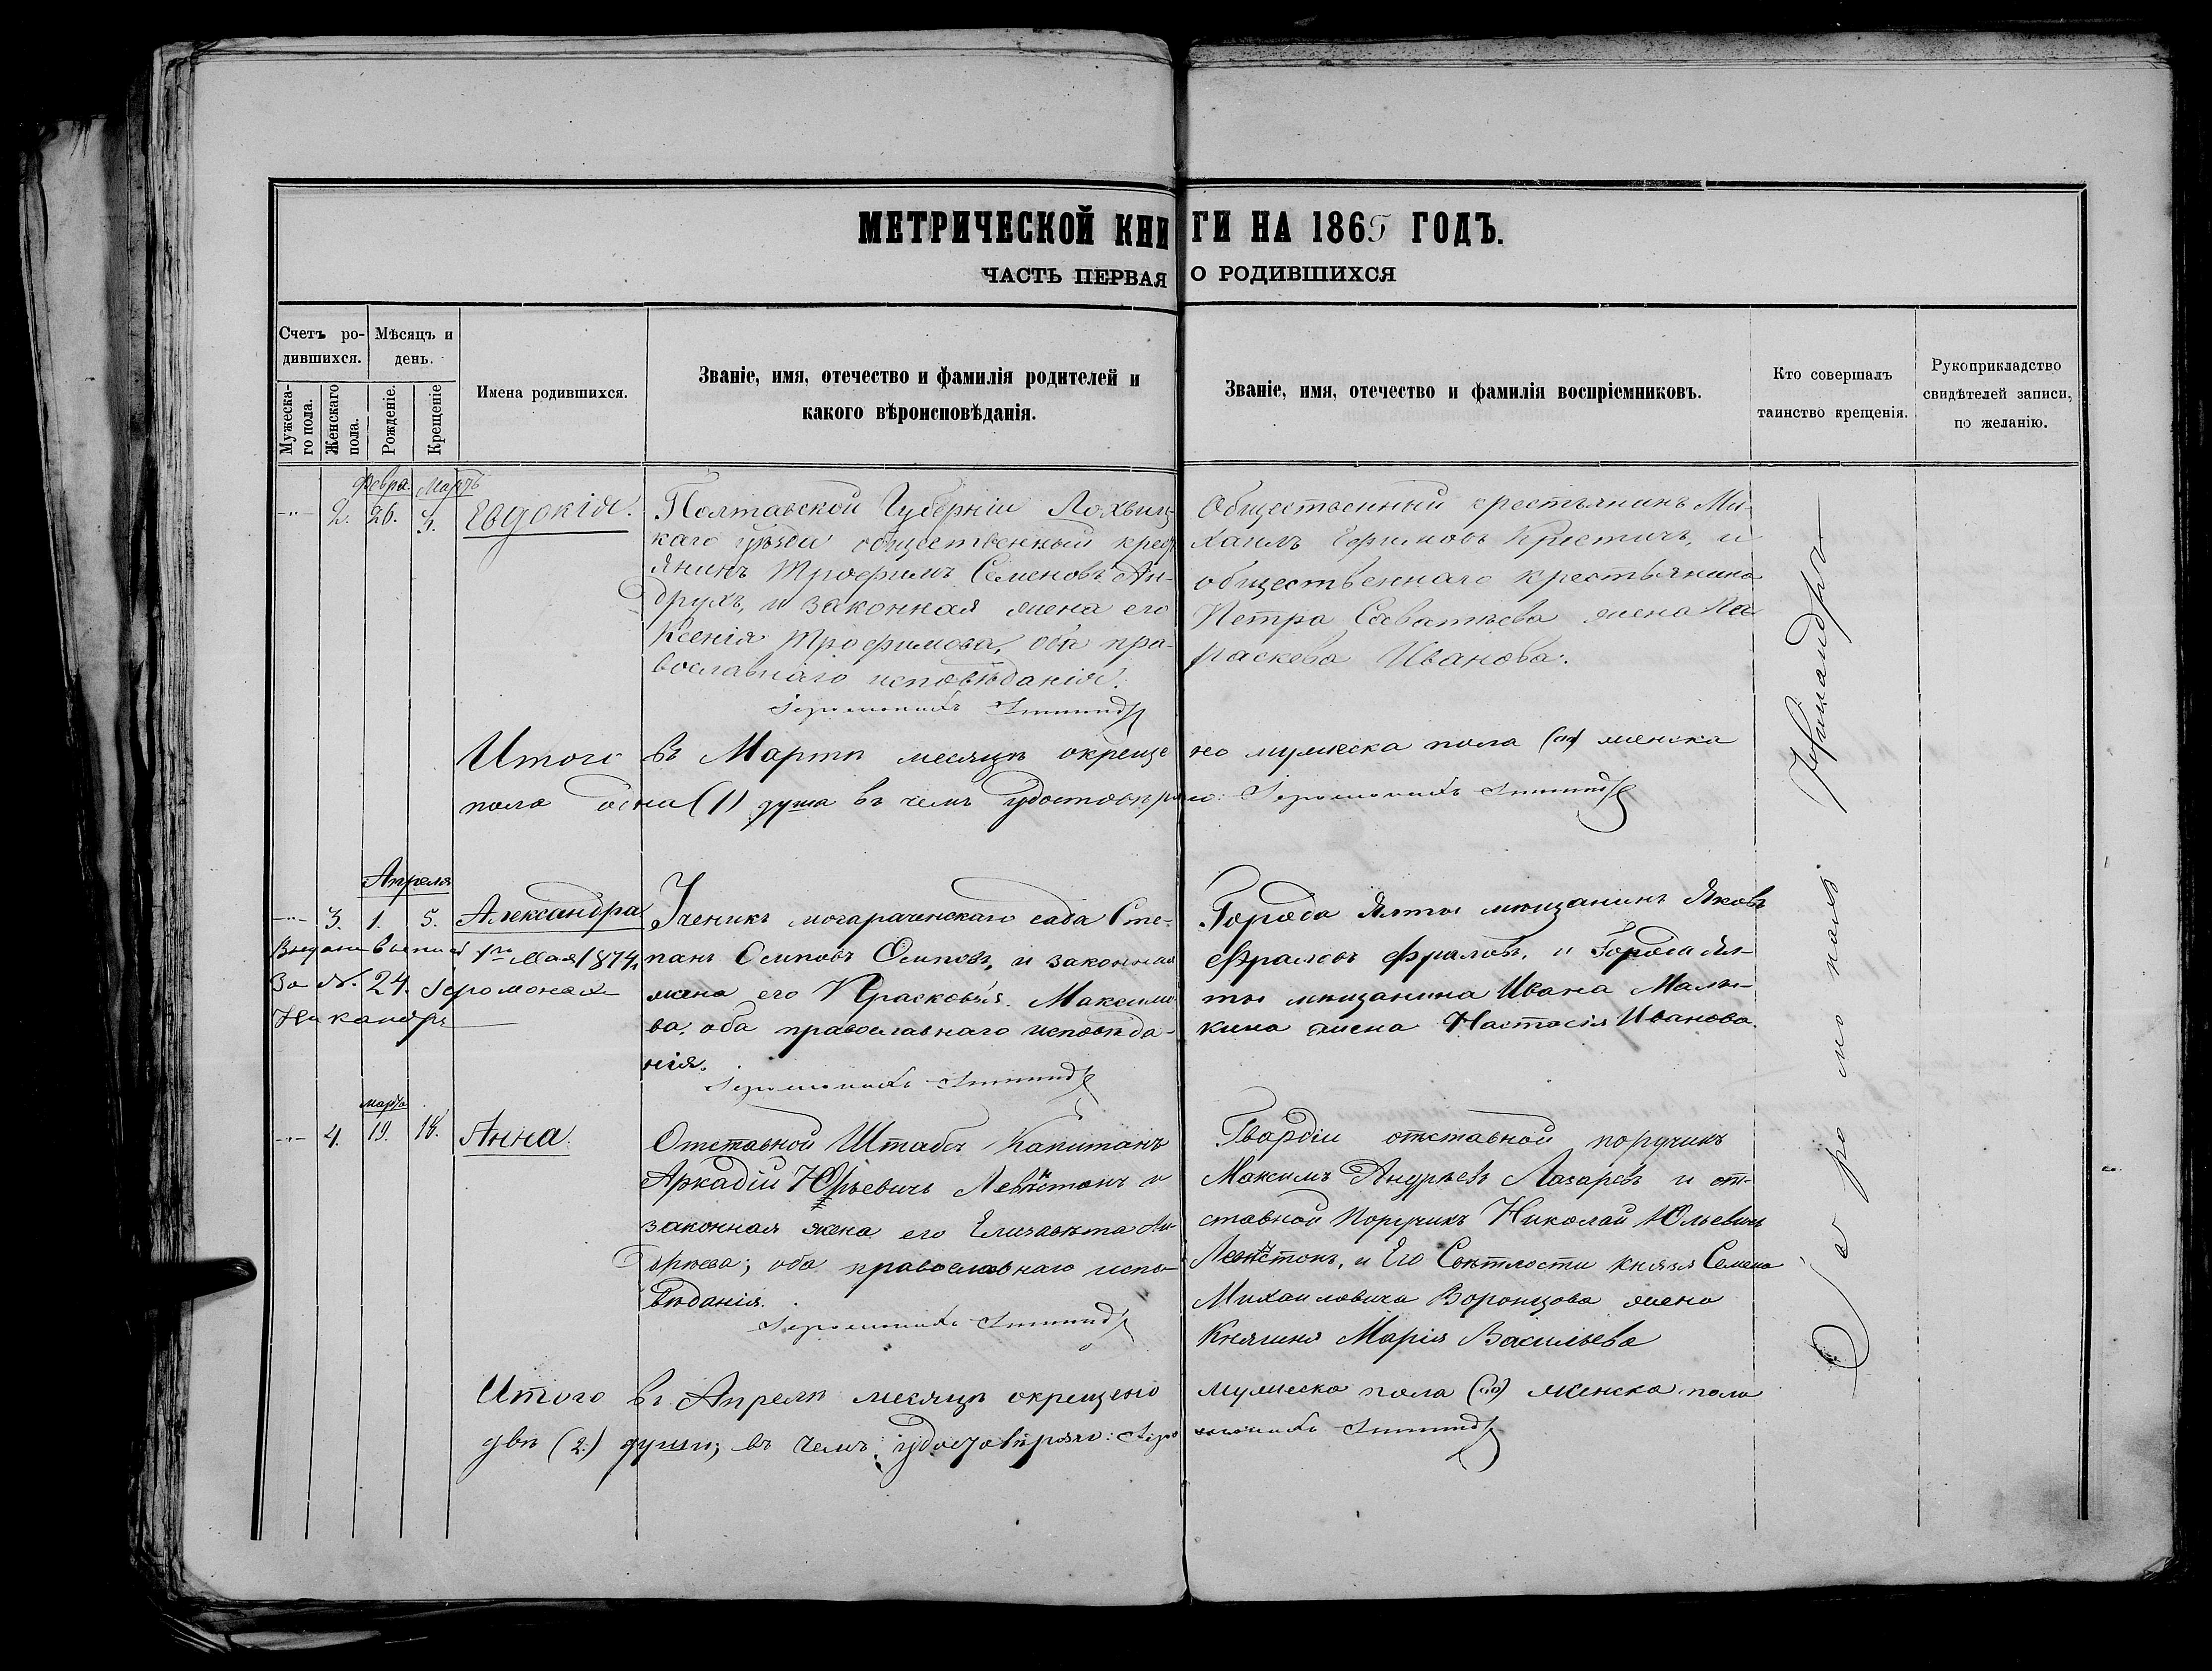 МЕТРИЧЕСКОЙ КНИГИ НА 1865 ГОДЪ.
ЧАСТЬ ПЕРВАЯ О РОДИВШИХСЯ
Счетъ ро-
дившихся.
Мѣсяцъ и
день.
Мужеска-
го пола.
Женскаго
пола.
Рожденіе.
Крещеніе
Имена родившихся.
Званіе, имя, отечество и фамилія родителей и
какого вѣроисповѣданія.
Званіе, имя, отечество и фамилія воспріемниковъ.
Кто совершалъ
таинство крещенія.
Рукоприкладство
свидѣтелей записи,
по желанію.
Февра. Мартъ
2. 26. Евдокія.
Полтавской Губерніи Лохвиц-
каго уѣзда общественный крест
янинъ Трофимъ Семеновъ Ан-
друхъ, и законная жена его
Ксенія Трофимова, оба пра-
вославнаго исповѣданія.
Іеромонахъ
Общественный крестьянинъ Ми-
хаилъ и
общественнаго крестьянина
Петра Савватѣева жена Па
раскева Иванова.
Итого въ Мартѣ месяцѣ окрещено мужеска пола („) женска
пола одна (1) душа въ чемъ удостовѣряю: Іеромонахъ
Апреля
3. 1. 5. Александра
Выдана выпись 1го Мая 1874
За №. 24. Іеромонах
Никандръ
Ученикъ могарачскаго сада Сте-
панъ Осиповъ Осиповъ, и законная
жена его Прасковья Максимо
ва, оба православнаго исповѣда-
нія.
Іеромонахъ
Города Ялты мѣщанинъ Яковъ
Фраловъ Фраловъ, и Города Ял-
ты мѣщанина Ивана Малы-
кина жена Настасія Иванова.
марта
4. 19. 18. Анна.
Отставной Штабсъ Капитанъ
Аркадій Юрьевичъ и
законная жена его Елизавѣта Ан-
дрѣева; оба православнаго испо-
вѣданія.
Іеромонахъ
Гвардіи отставной поручикъ
Максимъ Андрѣевъ Лазаревъ и от-
ставной Поручикъ Николай Юльевичъ
и Его Свѣтлости князя Семена
Михаиловича Воронцова жена
Княгиня Марія Васильева
Итого въ Апрелѣ месяцѣ окрещено мужеска пола („) женска пола
двѣ (2.) души; въ чемъ удостовѣряю: Іеромонахъ